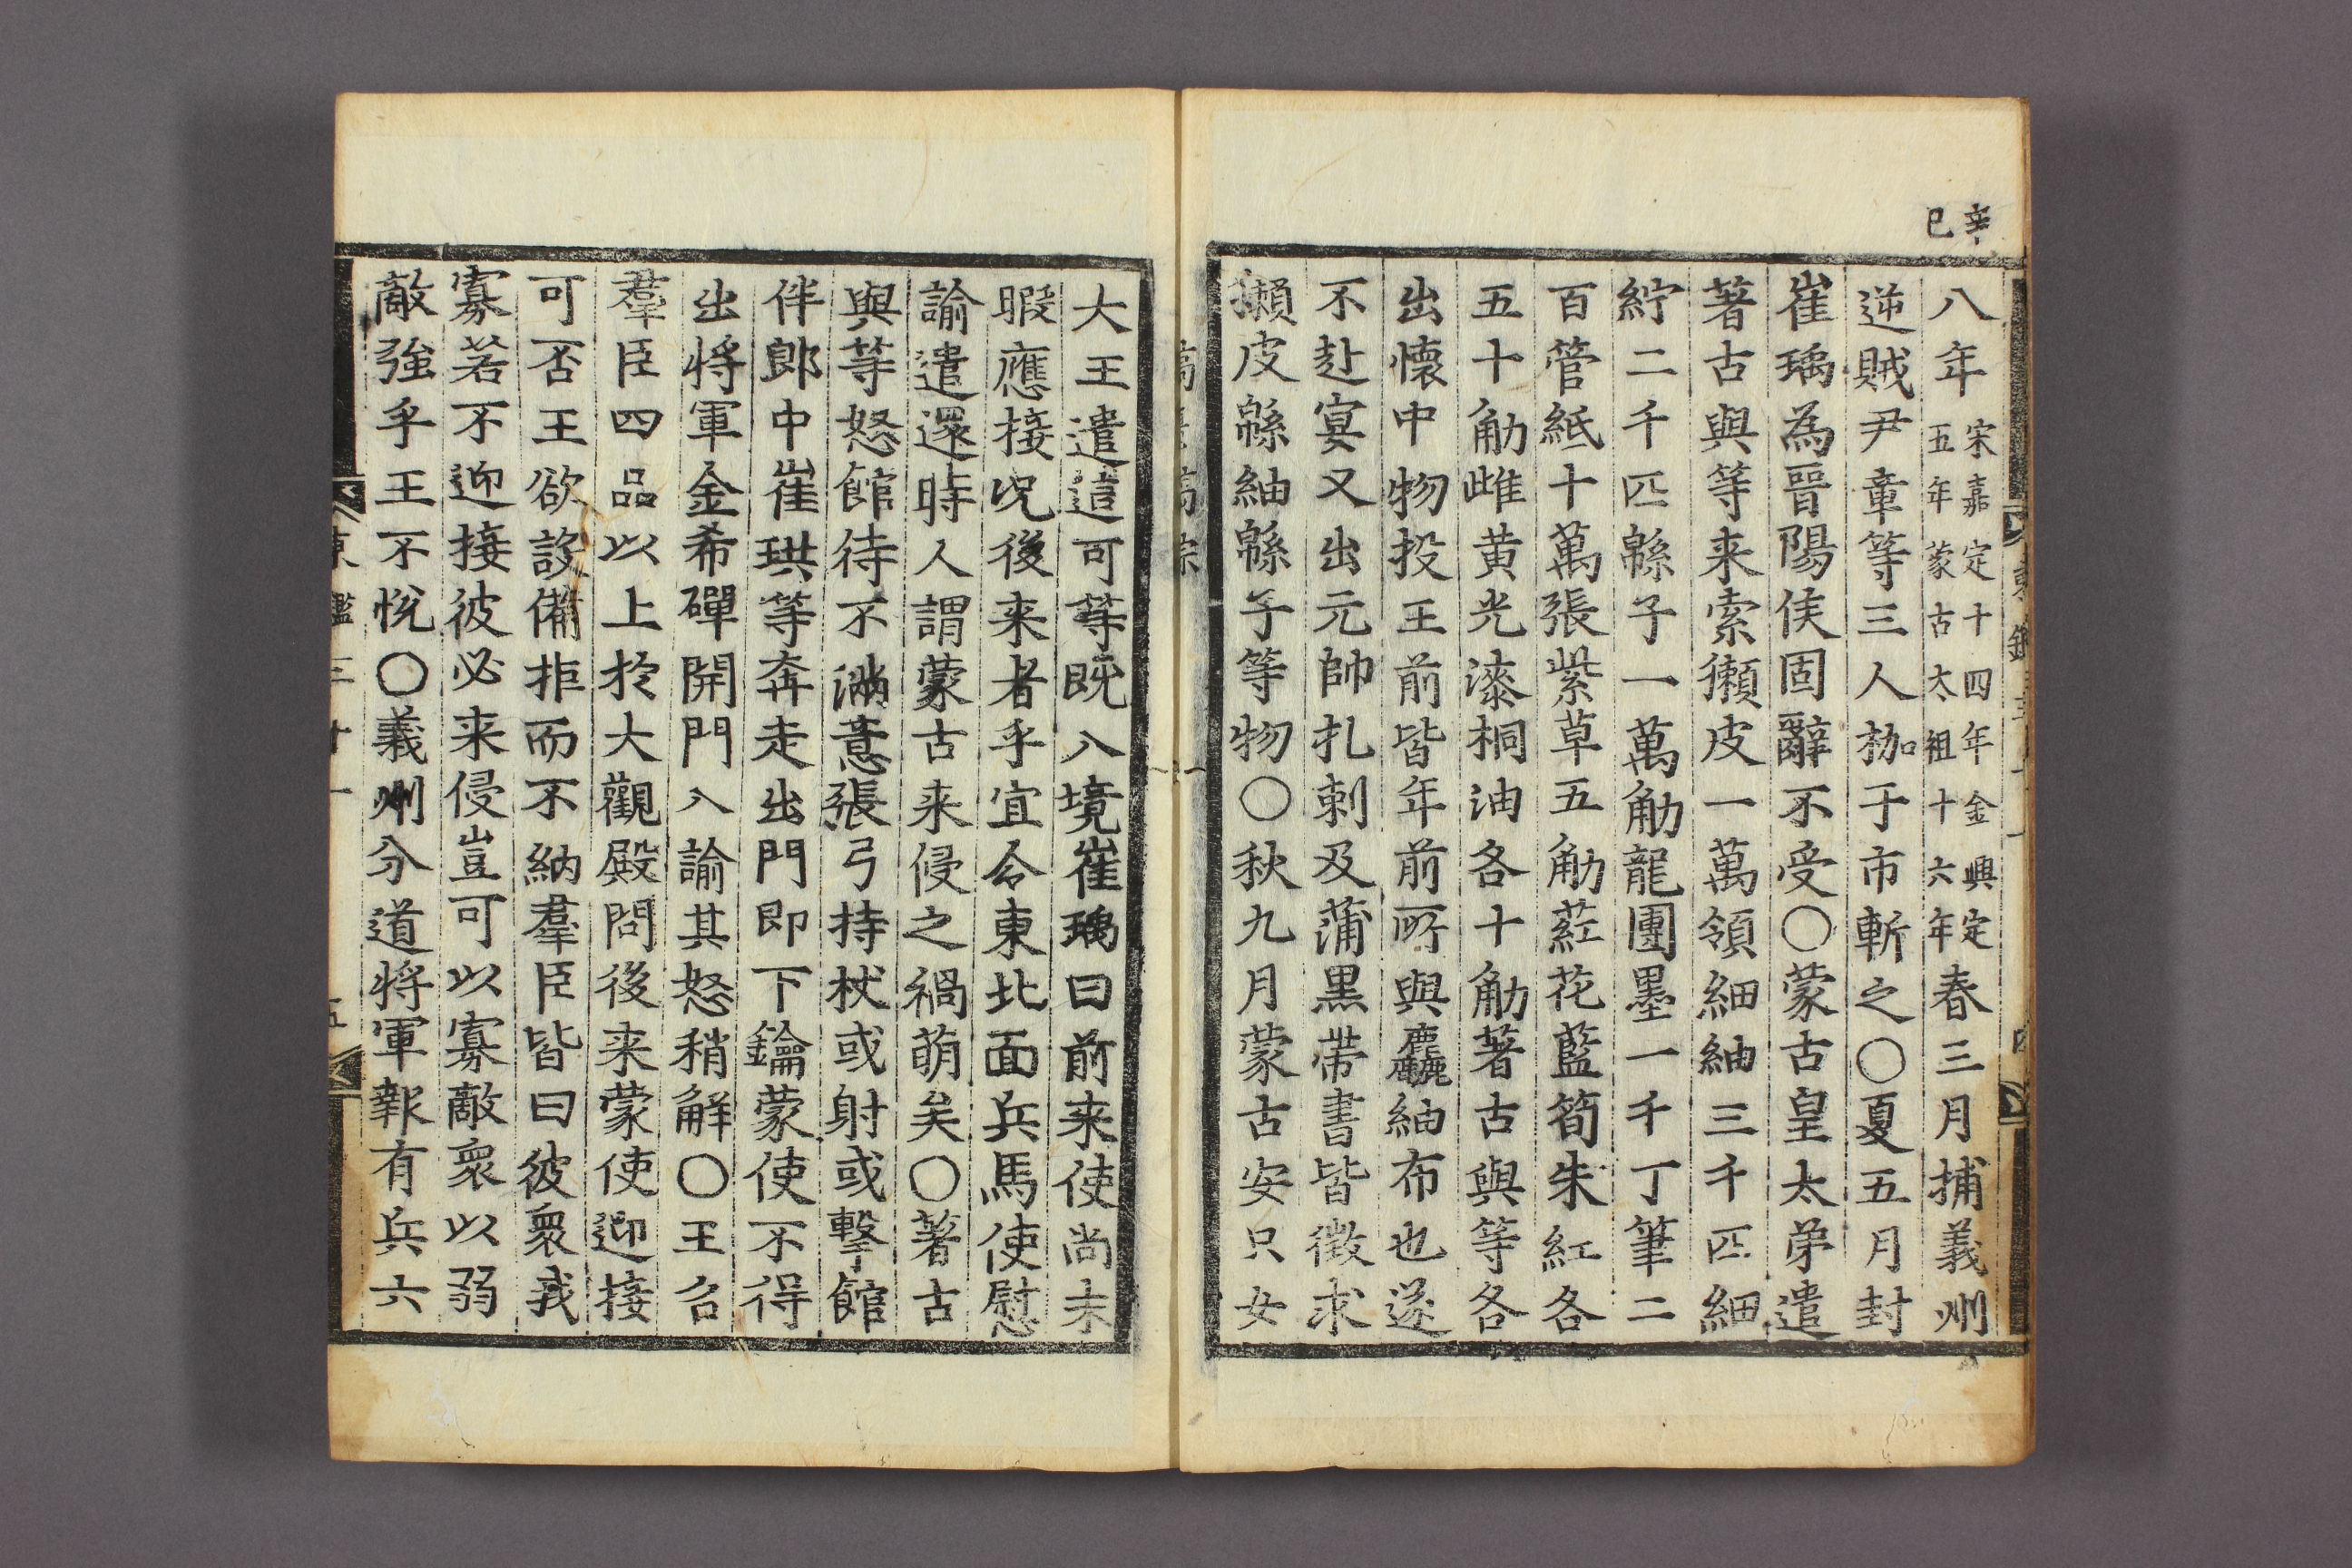 辛
巳
八年宋嘉定十四年金興定五年蒙古太祖十六年春三月捕義州
逆賊尹章等三人枷于市斬之〇夏五月封
崔瑀為晉陽侯固辭不受〇蒙古皇太弟遣
著古與等来索獺皮一萬領細紬三千匹細
紵二千匹緜子一萬觔龍團墨一千丁筆二
百管紙十萬張紫草五觔葒花藍筍朱紅各
五十觔雌黄光漆桐油各十觔著古與等各
出懷中物投王前皆年前所與麤紬布也遂
不赴宴又出元帥扎剌及蒲黒帶書皆徵求
獺皮緜紬緜子等物〇秋九月蒙古安只女
大王遣這可等既入境崔瑀曰前来使尚未
暇應接况後来者乎宜令東北面兵馬使慰
諭遣還時人謂蒙古来侵之禍萌矣〇著古
與等怒館待不滿意張弓持杖或射或擊館
伴郎中崔珙等奔走出門即下鑰蒙使不得
出将軍金希磾開門入諭其怒稍解〇王召
羣臣四品以上於大觀殿問後来蒙使迎接
可否王欲設備拒而不納羣臣皆曰彼衆我
寡若不迎接彼必来侵豈可以寡敵衆以弱
敵強乎王不悅〇義州分道将軍報有兵六
東鑑三十一
五